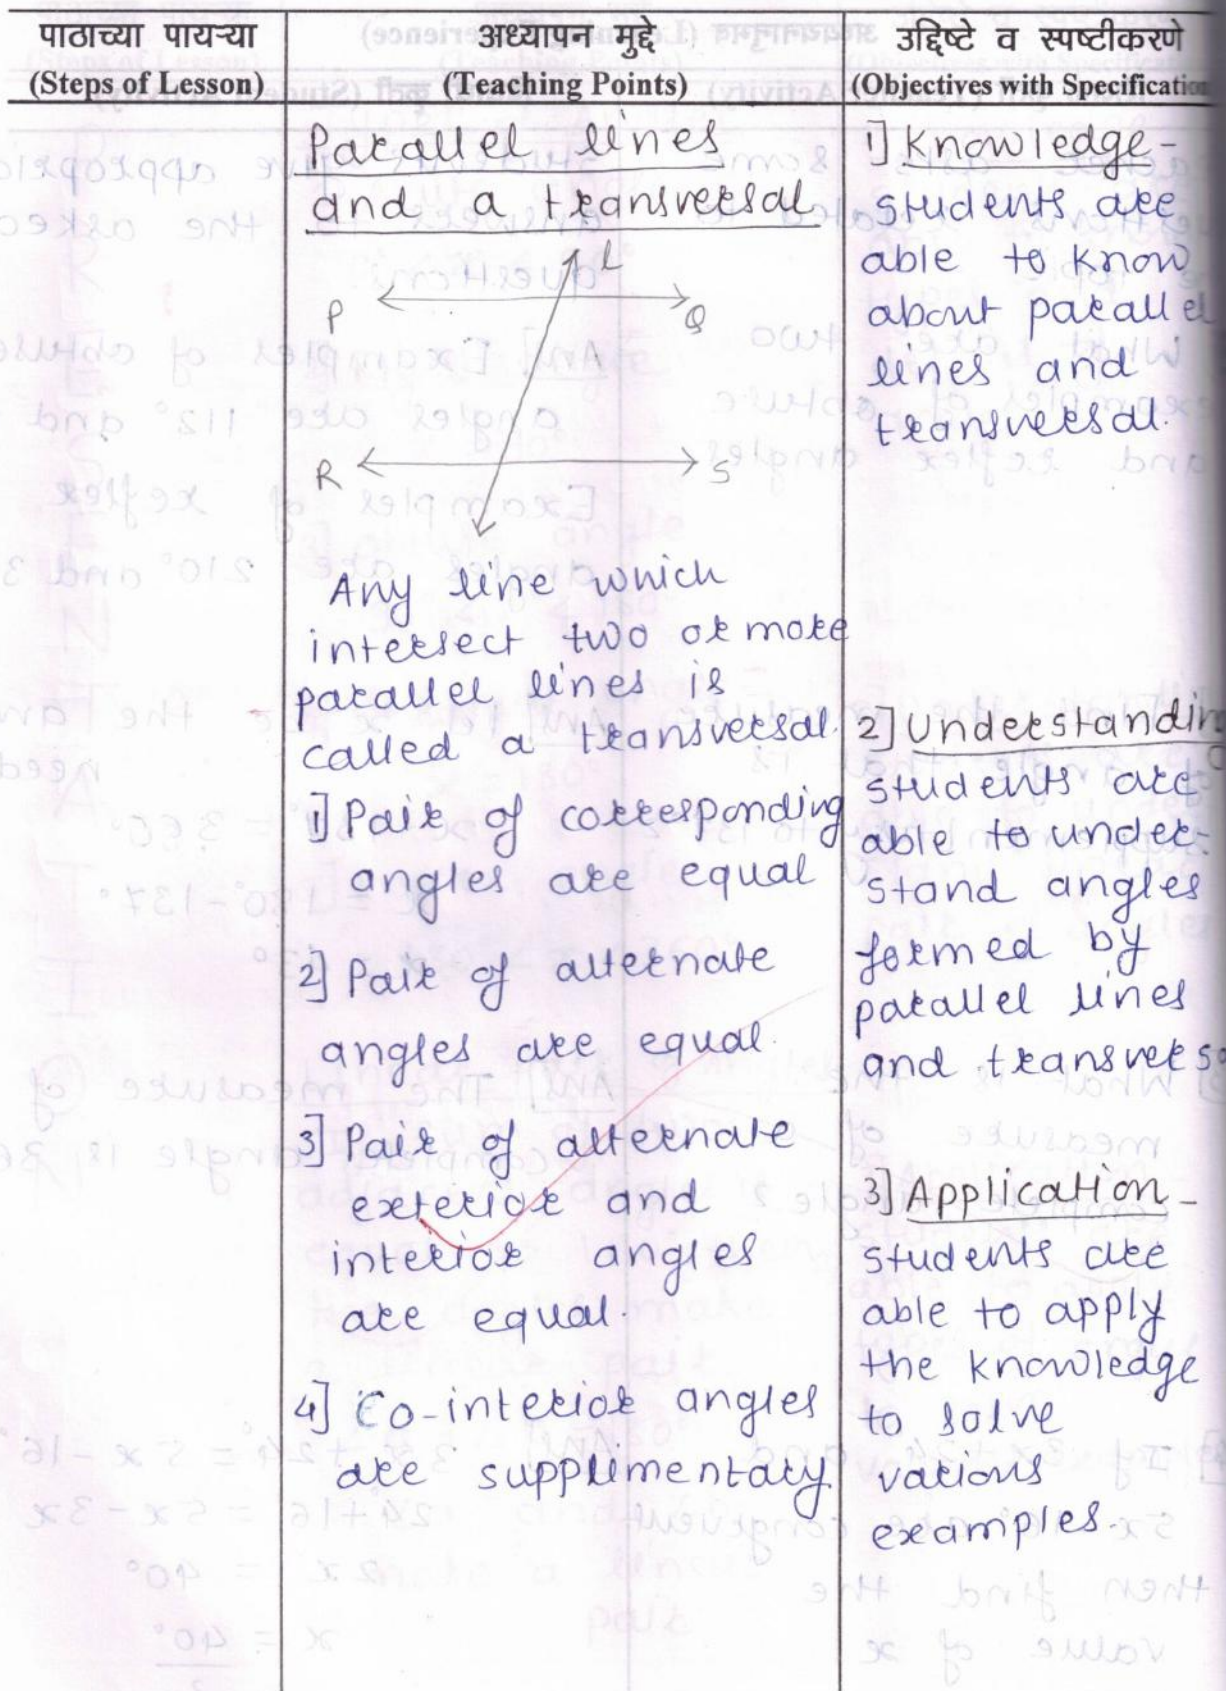 पाठाच्या पायऱ्या
(Steps of Lesson)
अध्यापन मुद्दे
(Teaching Points)
उद्दिष्टे व स्पष्टीकरणे
(Objectives with Specification
Parallel lines
and a transversal
l
P
Q
R
S
Any line which
intersect two or more
parallel lines is
called a transversal.
1] Pair of corresponding
angles are equal
2] Pair of alternate
angles are equal.
3] Pair of alternate
exterior and
interior angles
are equal.
4] Co-interior angles
are supplimentary
1] Knowledge-
students are
able to know
about parallel
lines and
transversal.
2] Understanding
students are
able to under-
stand angles
formed by
parallel lines
and transversa
3] Application -
students are
able to apply
the knowledge
to solve
various
examples.